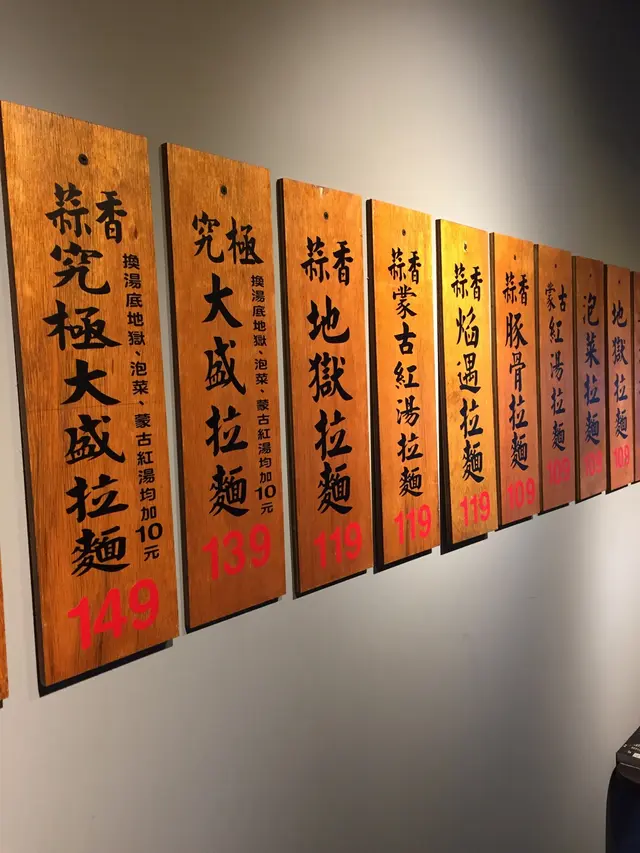 蒜香究極大盛拉麵
換湯底地獄、泡菜、蒙古紅湯均加10元
149
究極大盛拉麵
換湯底地獄、泡菜、蒙古紅湯均加10元
139
蒜香地獄拉麵
119
蒜香蒙古紅湯拉麵
119
蒜香焰遇拉麵
119
蒜香豚骨拉麵
109
蒙古紅湯拉麵
109
泡菜拉麵
109
地獄拉麵
109